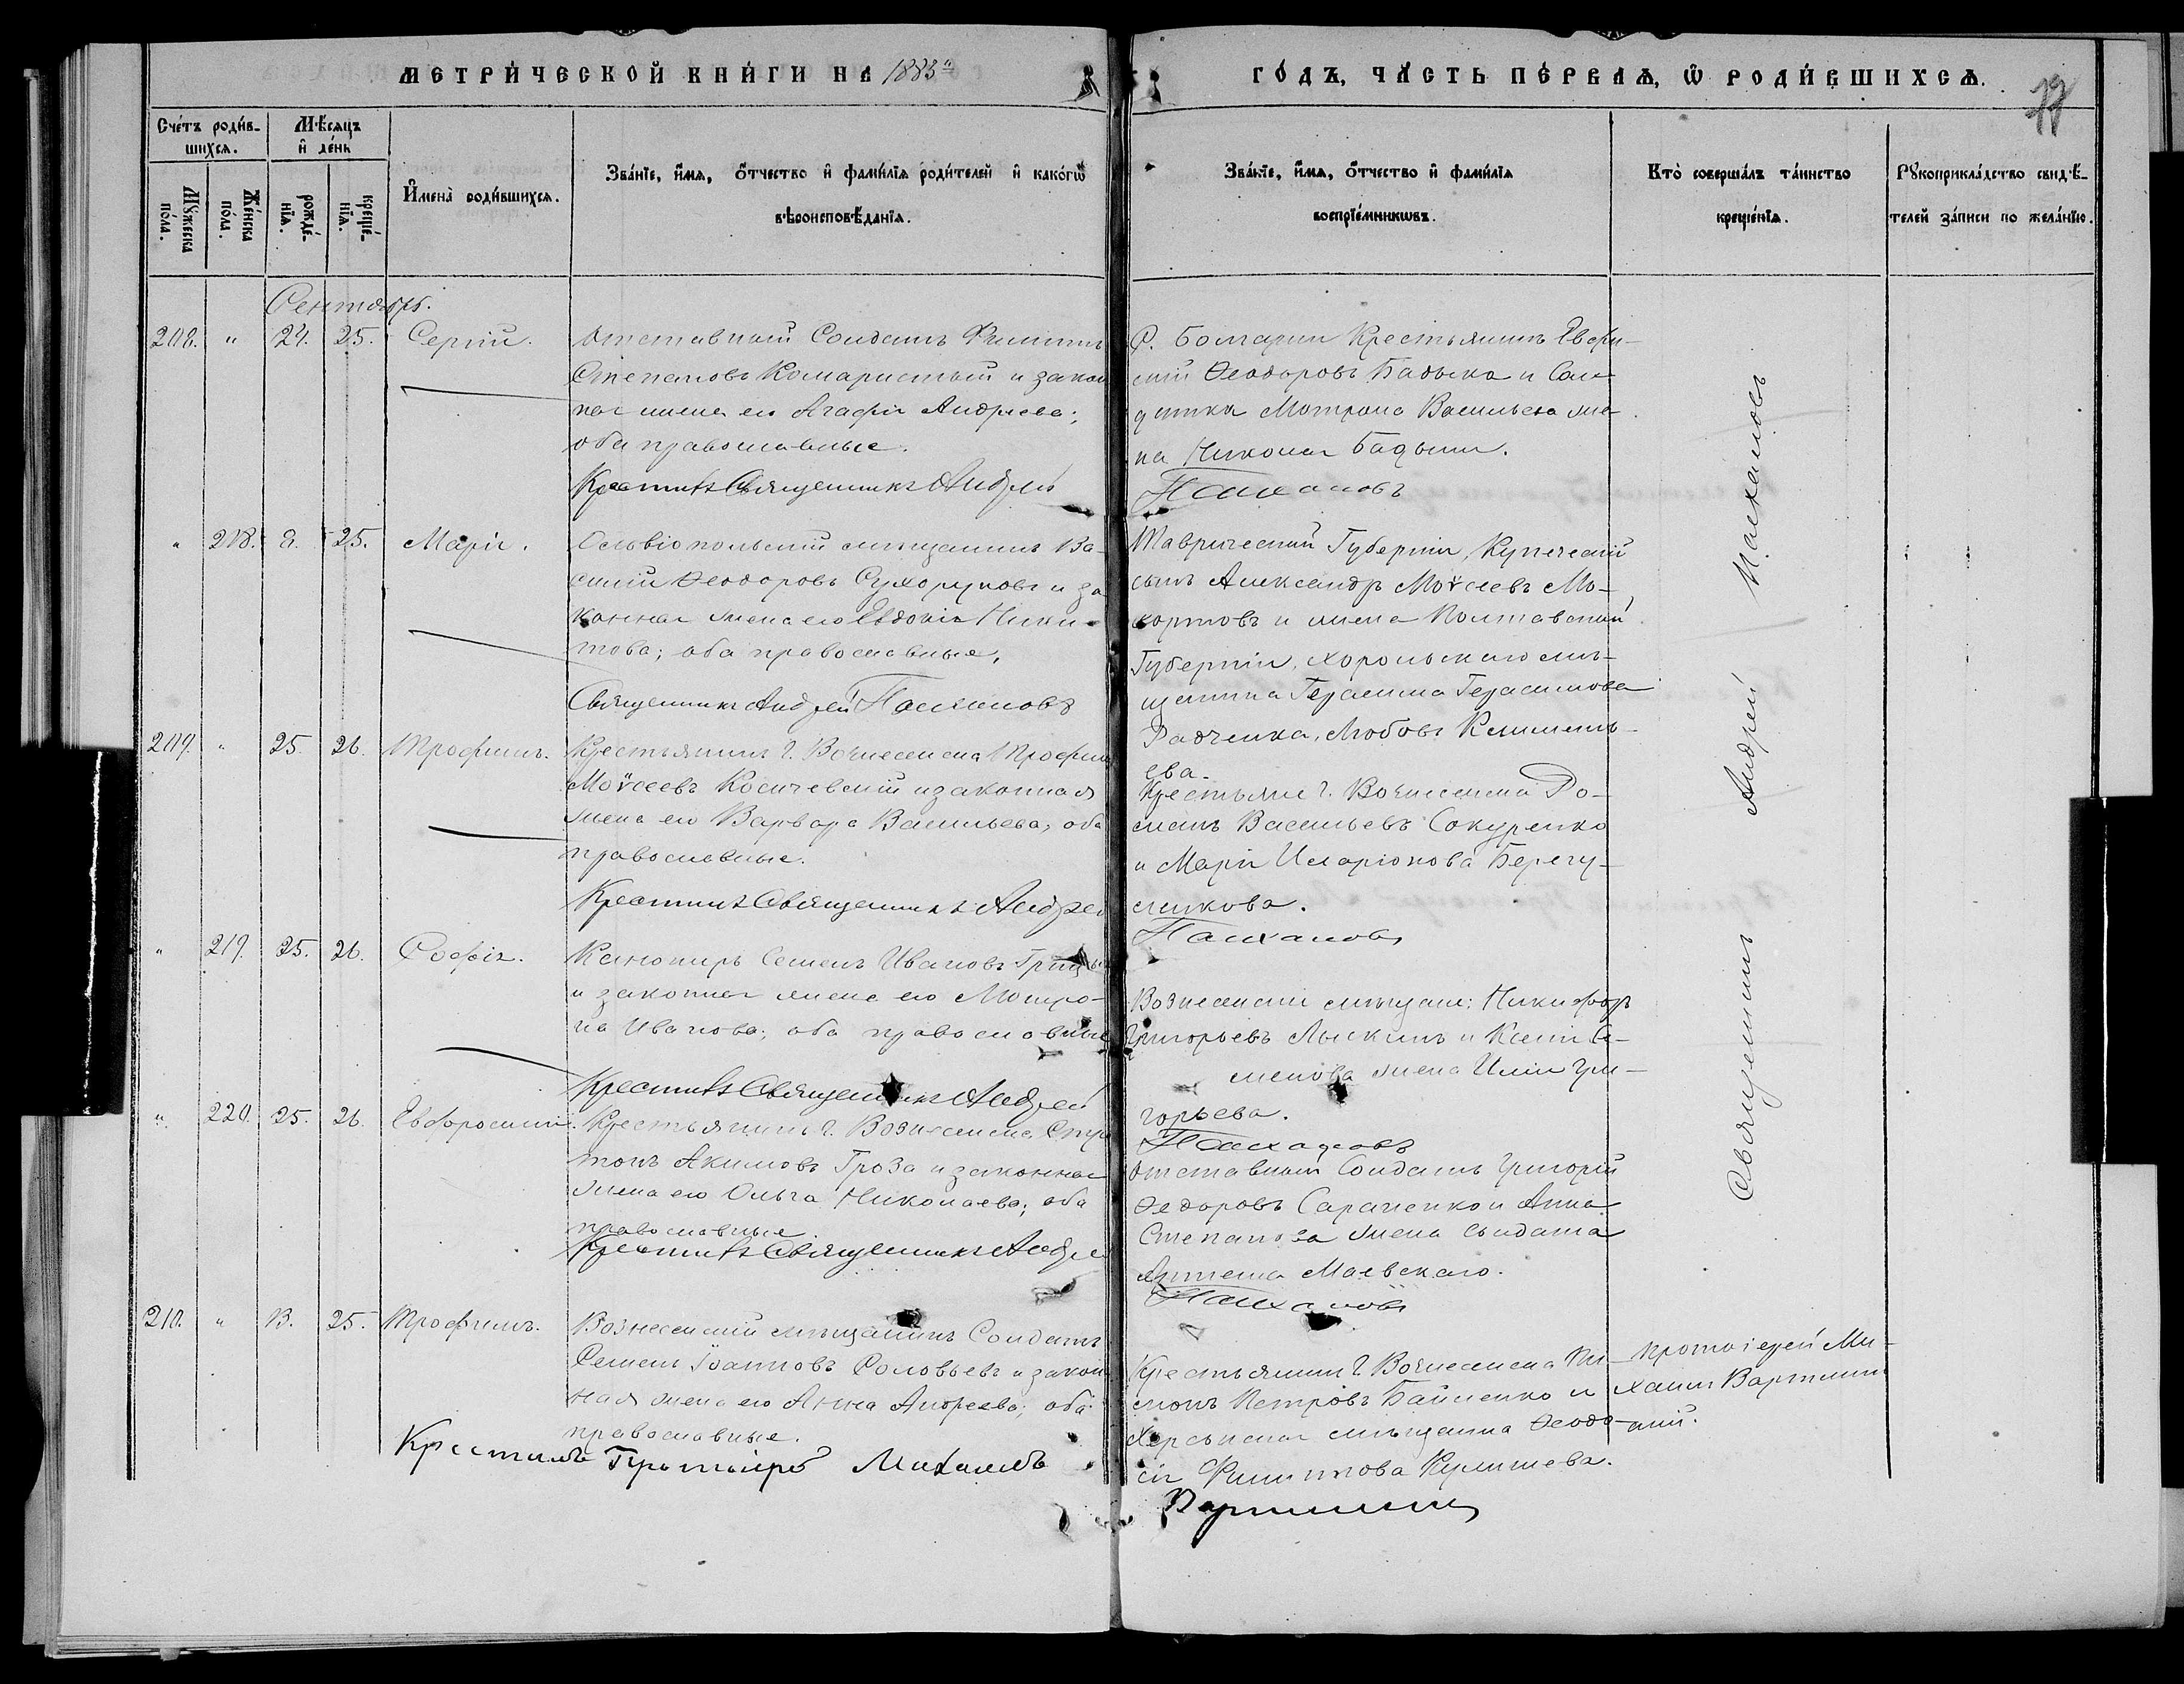 МЕТРИ́ЧЕСКОЙ КНИ́ГИ НА 1883й
ГО́ДЪ, ЧА́СТЬ ПЕ́РВАЯ, Ѿ РОДИ́ВШИХСЯ.
Сче́тъ роди́в-
шихся.
Мѣ́сяцъ
и де́нь
Му́жеска
по́ла.
Же́нска
по́ла.
рожде́-
нія.
креще́-
нія.
Имена̀ роди́вшихся.
Зва́ніе, и́мя, о́тчество и фами́лія роди́телей и како́гѡ
вѣроисповѣ́данія.
Зва́ніе, и́мя, о́тчество и фами́лія
воспріе́мникѡвъ.
Кто̀ соверша́лъ та́инство
креще́нія.
Рꙋкоприкла́дство свидѣ́-
телей за́писи по жела́нію.
Сентябрь.
208. " 24. 25. Сергій.
Отставной Солдатъ Филиппъ
Степановъ Комаристый и закон
ная жена его Агафія Андреева;
оба православные.
Крестилъ Священникъ Андрей
С. Болгарки Крестьянинъ Евфи-
мій Ѳеодоровъ Бадыка и Сол-
датка Матрона Васильева же-
на Николая Бадыки.
Палхаловъ
" 218. 8. 25. Марія.
Ольвіопольскій мѣщанинъ Ва-
силій Ѳеодоровъ Сухоруковъ и за
конная жена его Евдокія Ники-
това; оба православные.
Священникъ Андрей
Таврической Губерніи, Купеческій
сынъ Александръ Моѵсеевъ Мо-
и жена Полтавской
Губерніи, Хорольскаго мѣ-
щанина Герасима Герасимова
Радченка, Любовь Климентъ-
ева.
209. " 25. 26. Трофимъ.
Крестьянинъ г. Вознесенска Трофим
Моѵсеевъ Косичевскій и законная
жена его Варвара Васильева, оба
православные.
Крестилъ Священникъ Андрей
Крестьяне г. Вознесенска Ро-
манъ Васильевъ Сокуренко
и Марія Иларіонова Берегу-
ленкова.
" 219. 25. 26. Софія.
Канониръ Семенъ Ивановъ
и законная жена его Матро-
на Иванова; оба православные
Крестилъ Священникъ Андрей
Вознесенскіе мѣщане: Никифоръ
Григорьевъ Лыскинъ и Ксенія Се-
менова жена Иліи Гри-
горьева.
" 220. 25. 26. Евфросинія.
Крестьянинъ г. Вознесенска
Акимовъ Гроза и законная
жена его Ольга Николаева; оба
православные.
Крестилъ Священникъ Андрей
Отставной Солдатъ Григорій
Ѳедоровъ Сараненко и Анна
Степанова жена Солдата
Артема Маевскаго.
210. " 13. 25. Трофимъ.
Вознесенскій мѣщанинъ Солдатъ
Семенъ Іоанновъ Соловьевъ и закон
ная жена его Анна Андреева; оба
православные.
Крестилъ Протоіерей Михаилъ
Крестьянинъ г. Вознесенска Пи-
менъ Петровъ Байленко и
Херсонская мѣщанка Ѳеодо-
сія Филиппова Кулишева.
Священникъ Андрей
Протоіерей Ми-
хаилъ